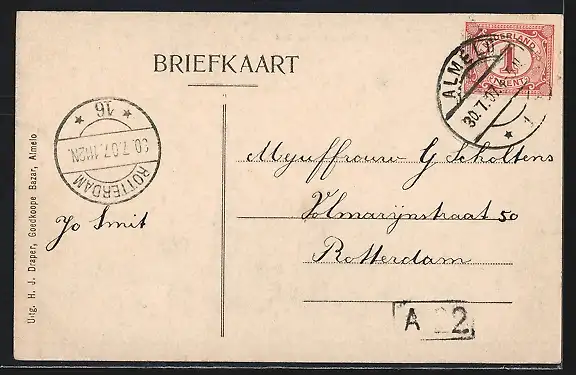 BRIEFKAART
NEDERLAND
1
CENT
ALMELO
30.7.07
* 1
* 16 *
30.7.07.11-12N.
ROTTERDAM
Mejuffrouw G Scholtens
Volmarijnstraat 50
Rotterdam
Jo Smit
A 22
Uitg. H. J. Draper, Goedkoope Bazar, Almelo